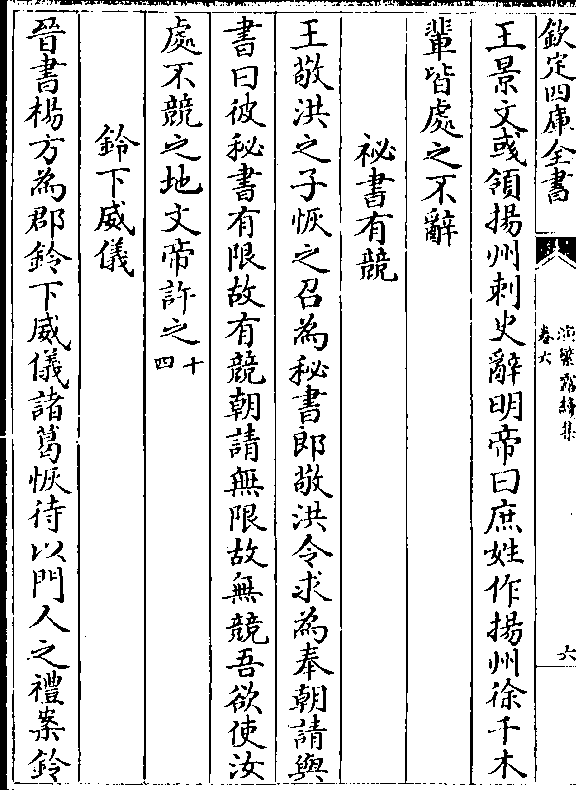 欽定四庫全書
演繁露續集
卷六
六
王景文彧領揚州刺史辭明帝曰庶姓作揚州徐干木
輩皆處之不辭
祕書有競
王敬洪之子恢之召為秘書郎敬洪令求為奉朝請與
書曰彼秘書有限故有競朝請無限故無競吾欲使汝
處不競之地文帝許之十四
鈴下威儀
晉書楊方為郡鈴下威儀諸葛恢待以門人之禮案鈴